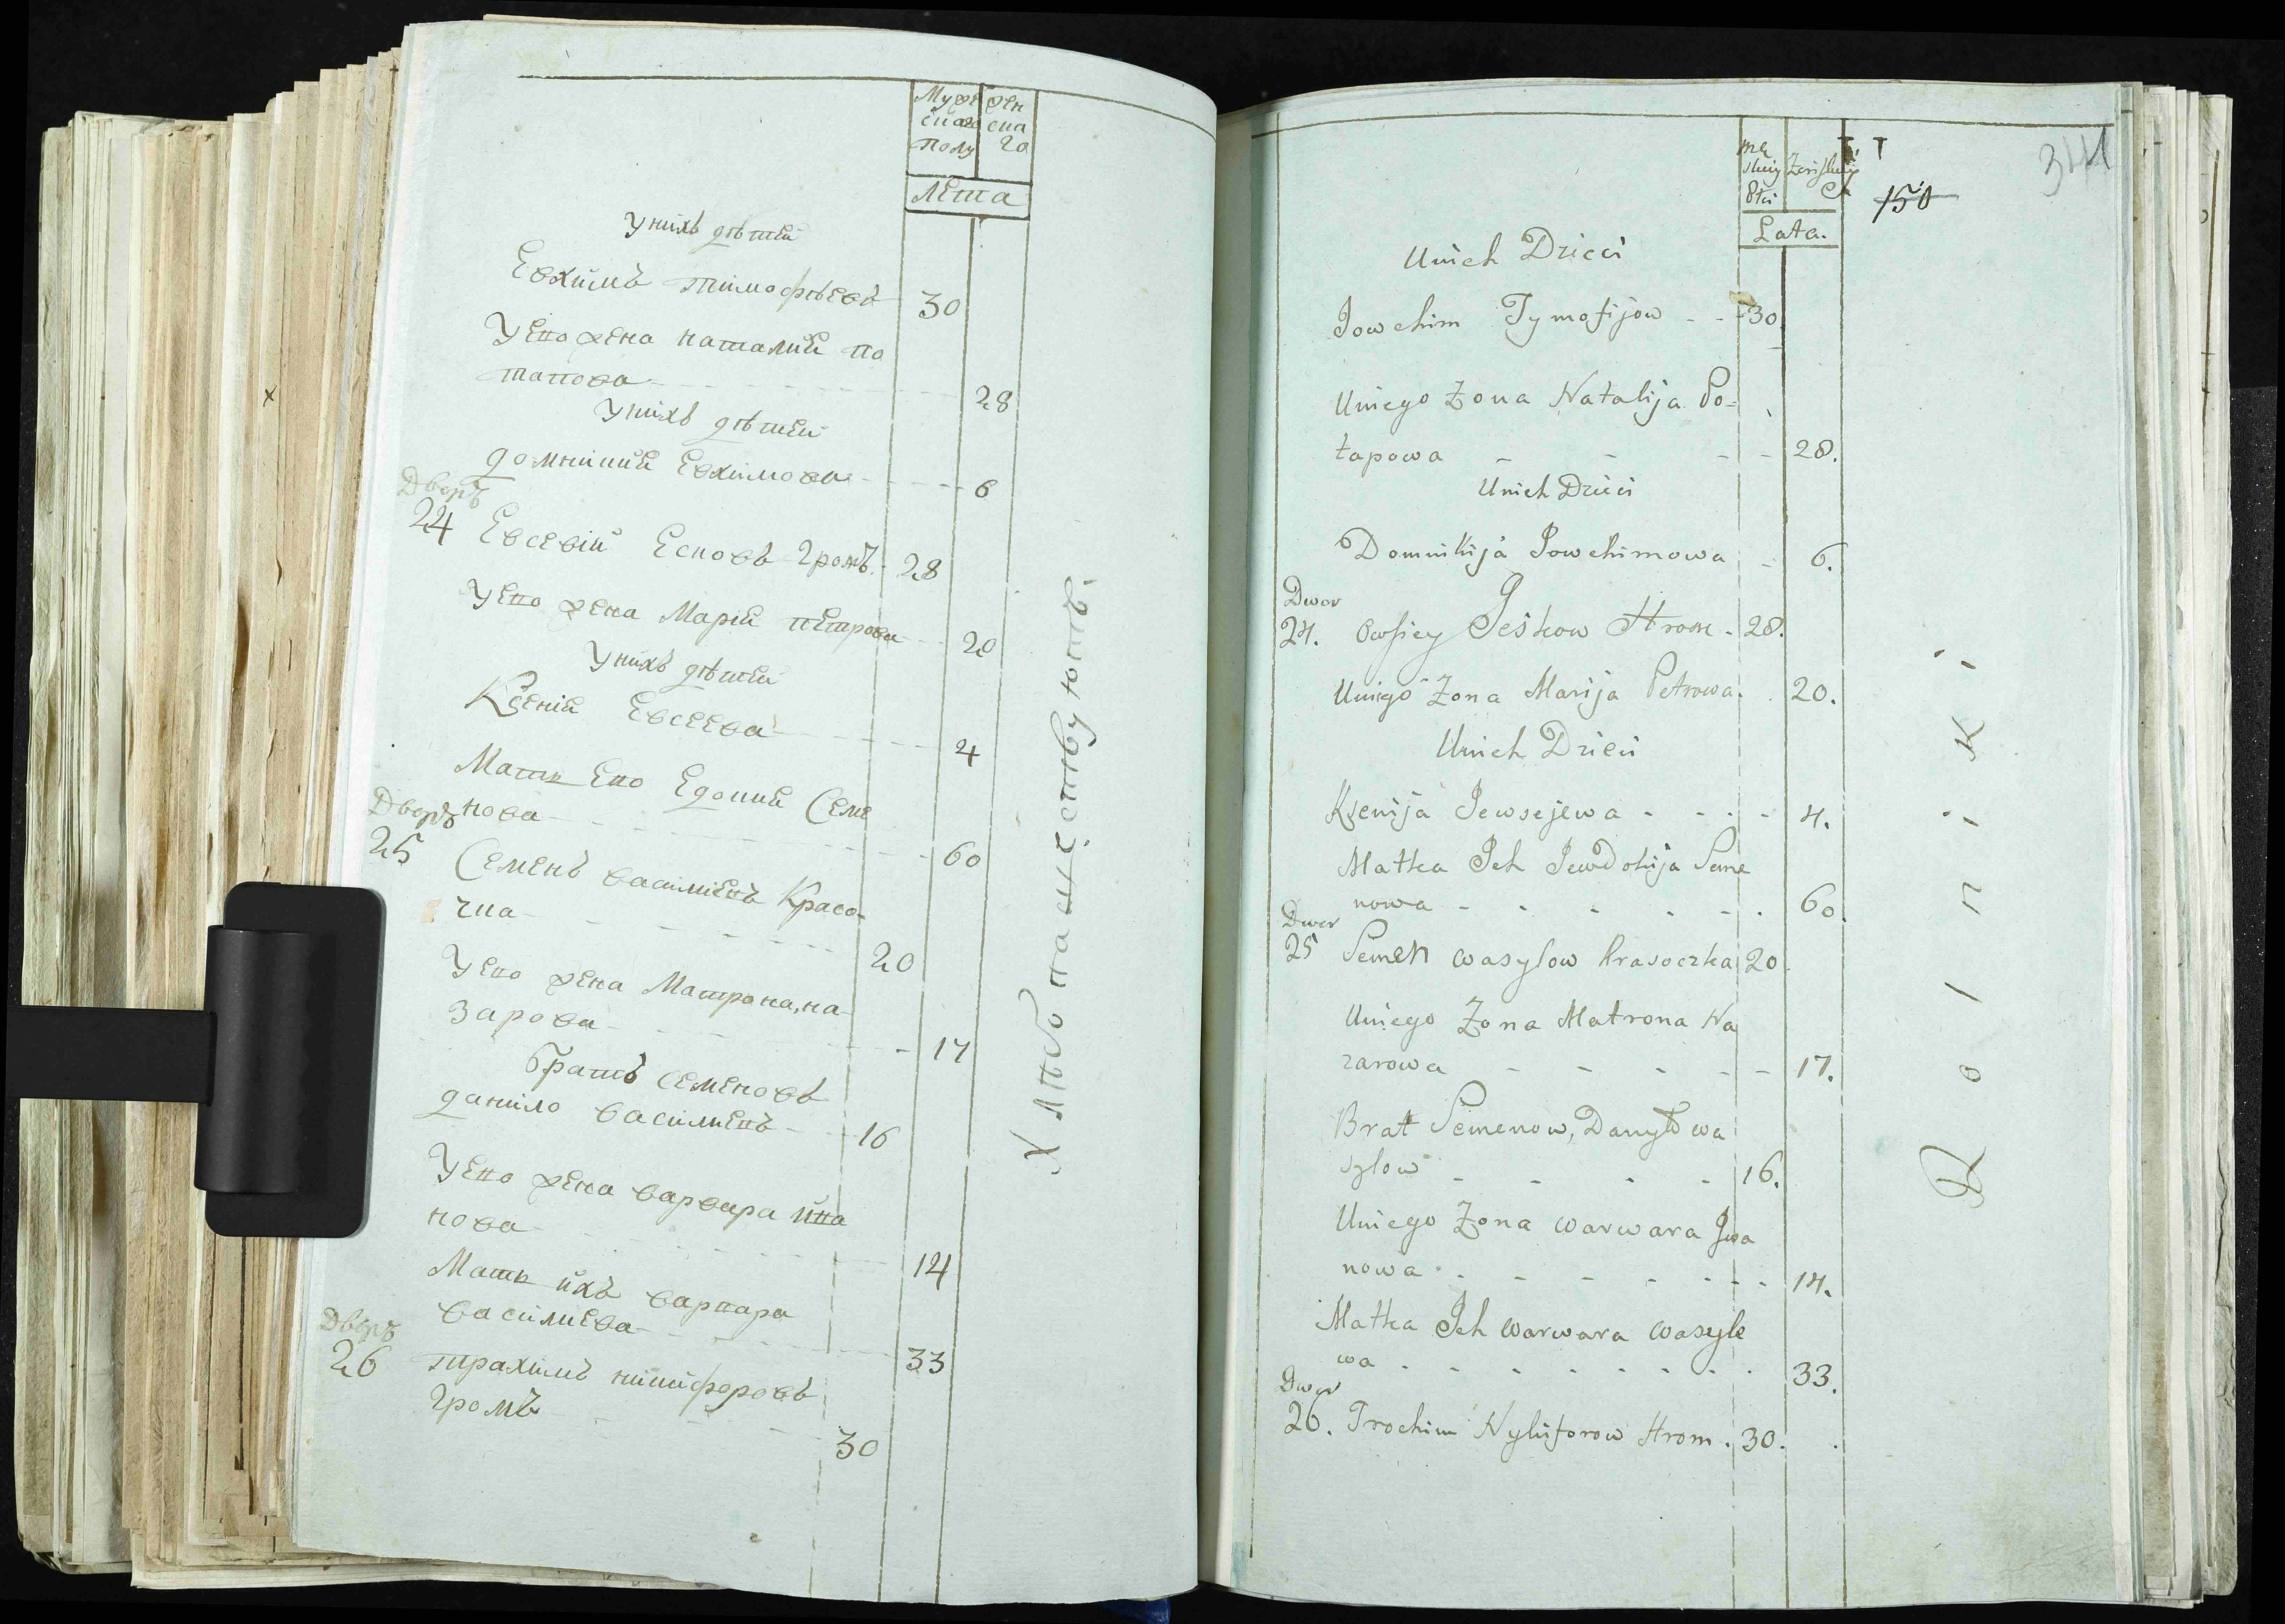 Муже
ска̂го
полу
жен
ска
го
Лета
У нихъ дѣтей
Евхимъ тимофѣевъ 30
У его жена наталия по
тапова 28
У нихъ дѣтей
домникия Евхимова 6
Дворъ
24 Евсевий Есковъ Громъ 28
У его жена Мария петрова 20
У нихъ дѣтей
Ксения Евсеева 4
Мать Его Едокия Семе
нова 60
Дворъ
25 Семенъ василиевъ Красо-
чка 20
У его жена Матрона, на-
зарова 17
братъ Семеновъ
данило василиевъ 16
У его жена варвара ива
нова 14
Мать ихъ варвара
василиева 33
Дворъ
26 трахимъ никифоровъ
громъ 30
Хлѣбопашествуютъ.
341
150
mę
skiey
Płci
Żeńskiey
Lata.
Unich Dzieci
Jowchim Tymofijow - - 30.
Uniego Żona Natalija Po-
tapowa - - - - 28.
Unich Dzieci
Domnikija Jowchimowa - 6.
Dwor
24. Owsiey Jeśkow Hrom - 28.
Uniego Żona Marija Petrowa. . 20.
Unich Dzieci
Ksenija Jewsejewa - - - - 4.
Matka Ich Jewdokija Seme
nowa - - - - - . 60.
Dwor
25 Semen Wasylow Krasoczka 20
Uniego Żona Matrona Na
zarowa - - - - - 17.
Brat Semenow, Danyło Wa
sylow - - - - 16.
Uniego Żona Warwara Iwa
nowa - - - - - - - 14.
Matka Ich Warwara Wasyle
wa - - - - - - - - 33.
Dwor
26. Trochim Nykiforow Hrom . 30.
Rolniki